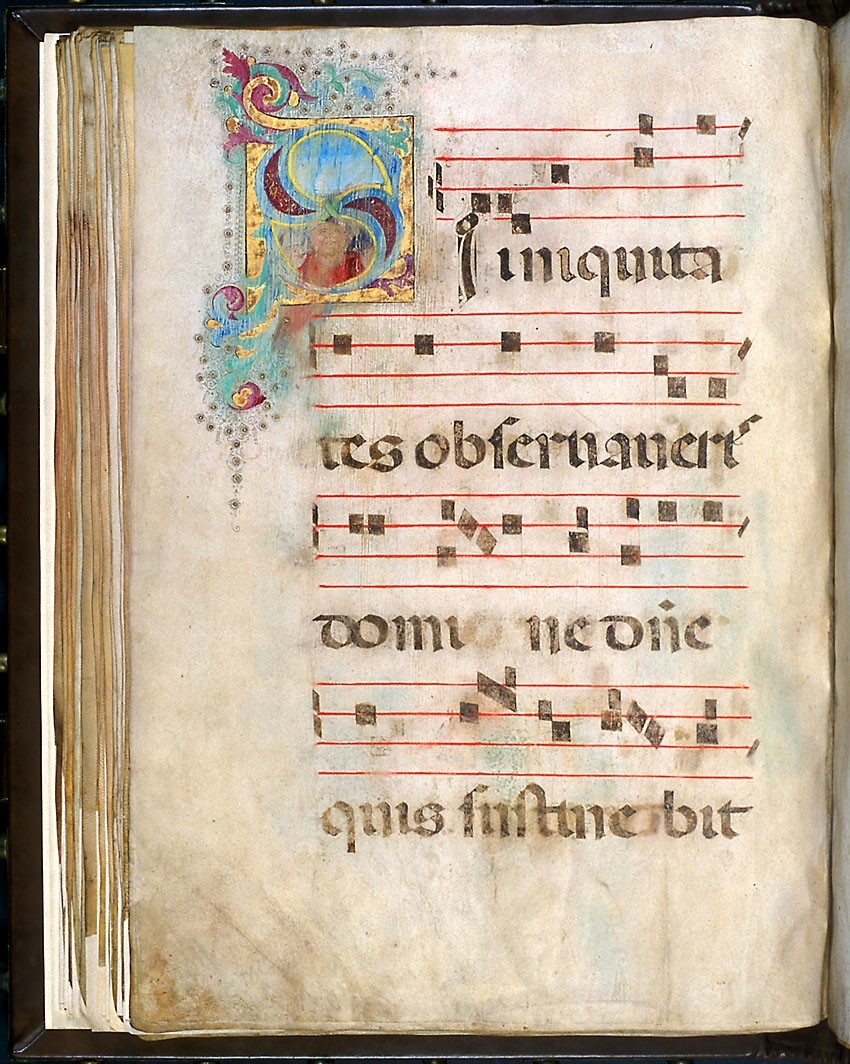 SI iniquita
tes obſeruaueriˢ
domi ne dñe
quis ſuſtine bit